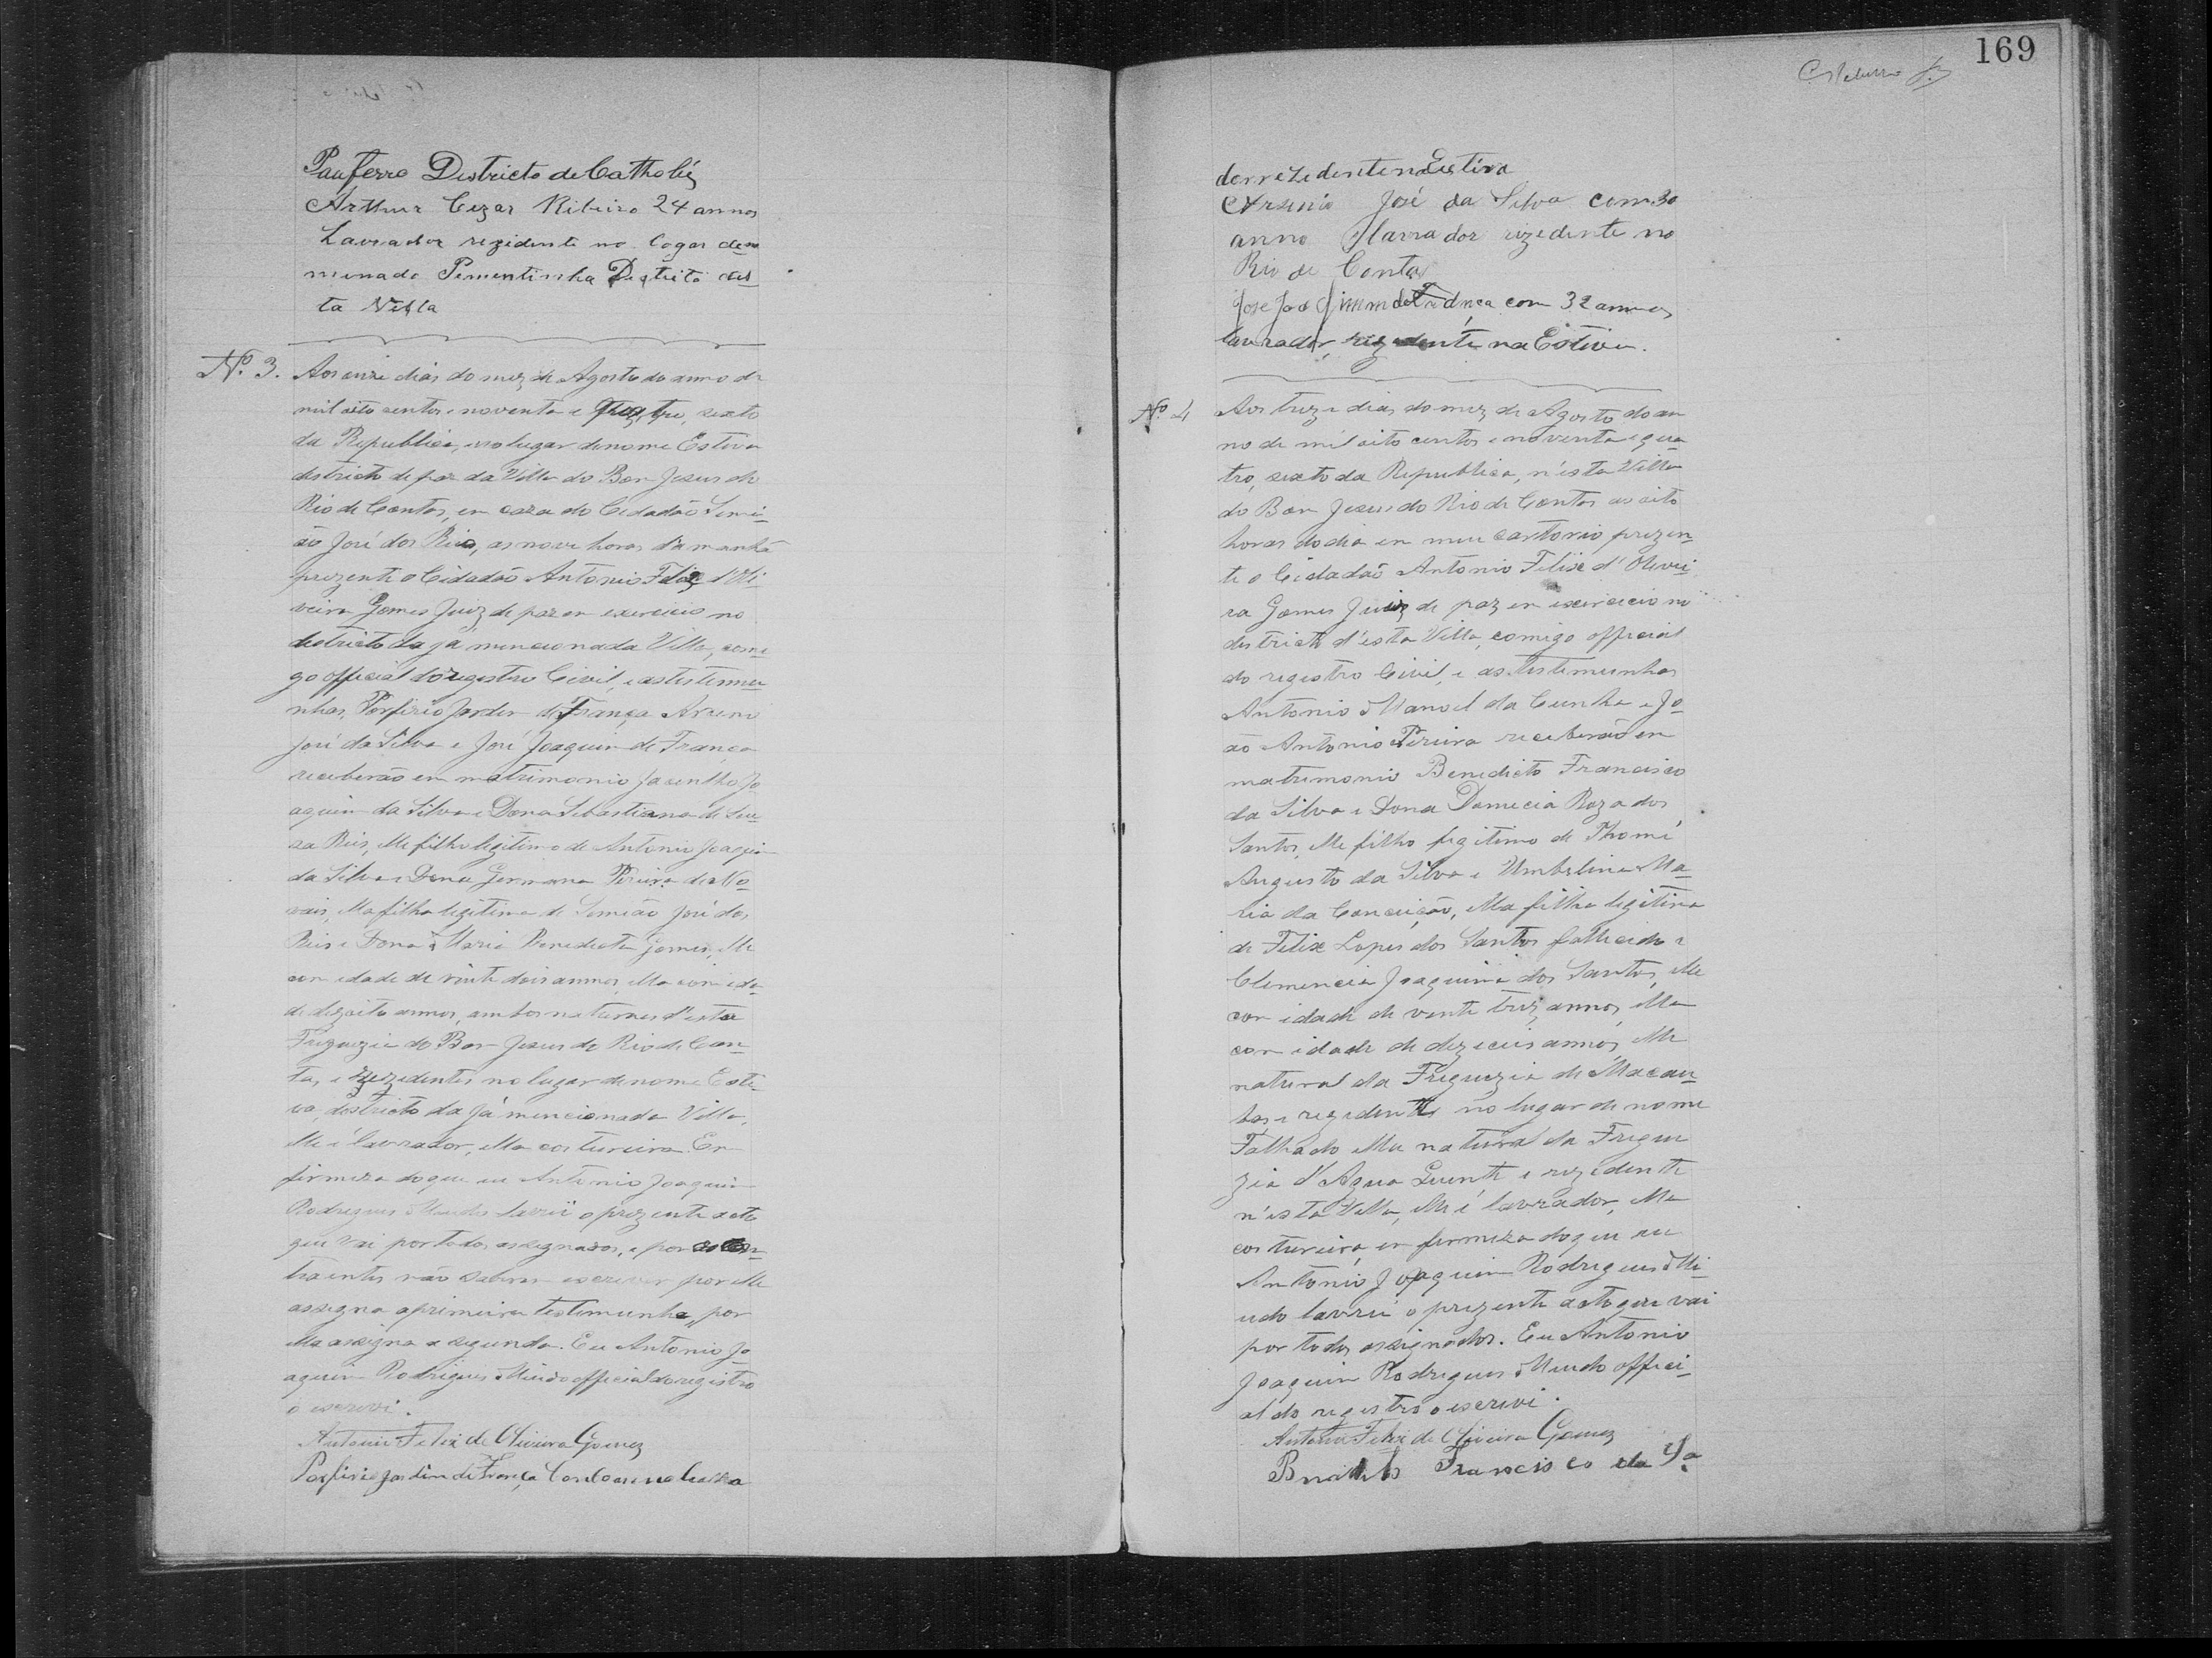 Pauferro Districto de Catholés
Arthur Cezar Ribeiro 24 annos
Lavrador rezidente no logar deno
menado Pementinha Destrito des
ta Villa
Nº 3. Aos onze dias do mez de Agosto do anno de
mil oito centos e noventa e quatro, sexto
da Republica, no lugar denome Estiva
destricto de paz da Villa do Bom Jesus do
Rio de Contas, em caza do Cidadão Simi-
ão José dos Reis, as nove horas da manhã
prezente o Cidadão Antonio Felix d'Oli-
veira Gomes Juiz de paz em exercicio no
destricto da já mencionada Villa, comi-
go official do registro Civil, e as testemu-
nhas, Porfirio Jardim de França Arseni
José da Silva e José Joaquim de França
receberão em matrimonio Jacintho Jo-
aquim da Silva e Dona Sebastiana de
Reis, Elle filho legitimo de Antonio Joaquim
da Silva e Dona Germana Pereira de No-
vais, Ella filha legitima de Simião José dos
Reis e Dona Maria Benedicta Gomes, Elle
com idade de vinte dois annos, Ella com ida-
de dezoito annos, ambos naturaes d'esta
Freguezia do Bom Jesus do Rio de Con-
tas, e rezidentes no lugar denome Esti-
va, destricto da já mencionada Villa,
Elle é lavrador, Ella costureira. Em
firmeza do que eu Antonio Joaquim
Rodrigues Miudo lavrei o prezente acto
que vai por todos assignados, e por os con-
traentes não saberem escrever por Elle
assigna a primeira testemunha, por
Ella assigna a segunda. Eu Antonio Jo-
aquim Rodrigues Miudo official do registro
o escrevi.
Antonio Felix de Oliveira Gomes
Porfirio Jardim de França
169
dor rezidente na Estiva
Arsenio José da Silva com 30
anno lavrador rezedente no
Rio de Contas
José de França com 32 annos
lavrador, rezedente na Estiva.
Nº 4 Aos treze dias do mez de Agosto do an
no de mil oito centos e noventa e qua
tro, sexto da Republica, n'esta Villa
do Bom Jesus do Rio de Contas as oito
horas do dia em meu cartorio prezen-
te o Cidadão Antonio Felix d'Olivei-
ra Gomes Juiz de paz em exercicio no
destricto d'esta Villa, comigo official
do registro Civil, e as testemunhas
Antonio Manoel da Cunha e Jo-
ão Antonio Pereira receberão em
matrimonio Benedicto Francisco
da Silva e Dona Domicia Roza dos
Santos, Elle filho legitimo de Thomé
Augusto da Silva e Umbelina Ma-
ria da Conceição, Ella filha legitima
de Felix Lopes dos Santos fallecido e
Clemencia Joaquina dos Santos, Elle
com idade de vente trez annos, Ella
com idade de dezeceis annos, Elle
natural da Freguezia de Macau-
bas e rezidente no lugar de nome
Talhado Ella natural da Fregue
zia d'Agua Quente e rezidente
n'esta Villa, Elle é lavrador, Ella
costureira, em firmeza do que eu
Antonio Joaquim Rodrigues Mi-
udo lavrei o prezente acto que vai
por todos assignados. Eu Antonio
Joaquim Rodrigues Miudo offici-
al do registro o escrevi.
Antonio Felix de Oliveira Gomes
Francisco da Sª